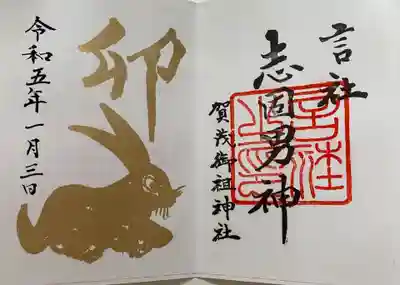 言社
志固男神
賀茂御祖神社
卯
令和五年一月三日